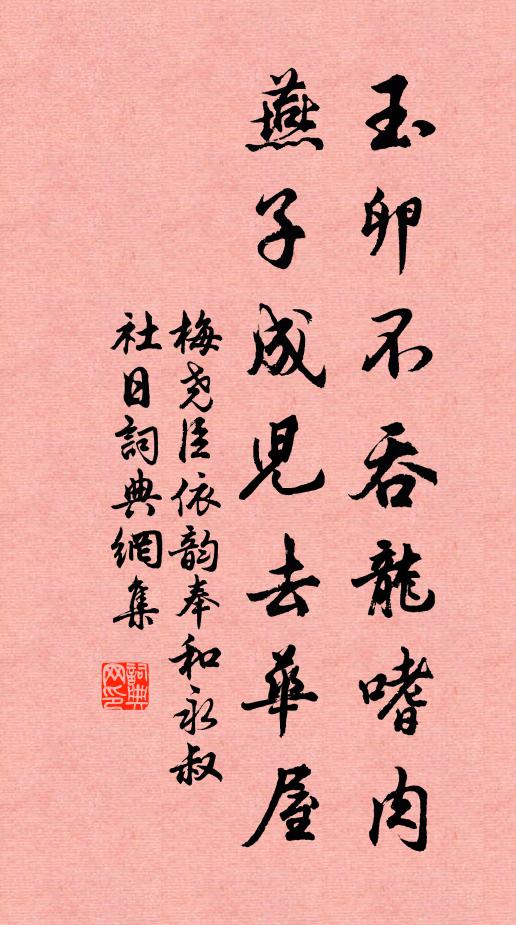 玉卵不吞龍嗜肉
燕子成児去華屋
梅尧臣依韵奉和永叔
社日詞典網集
詞典
网印